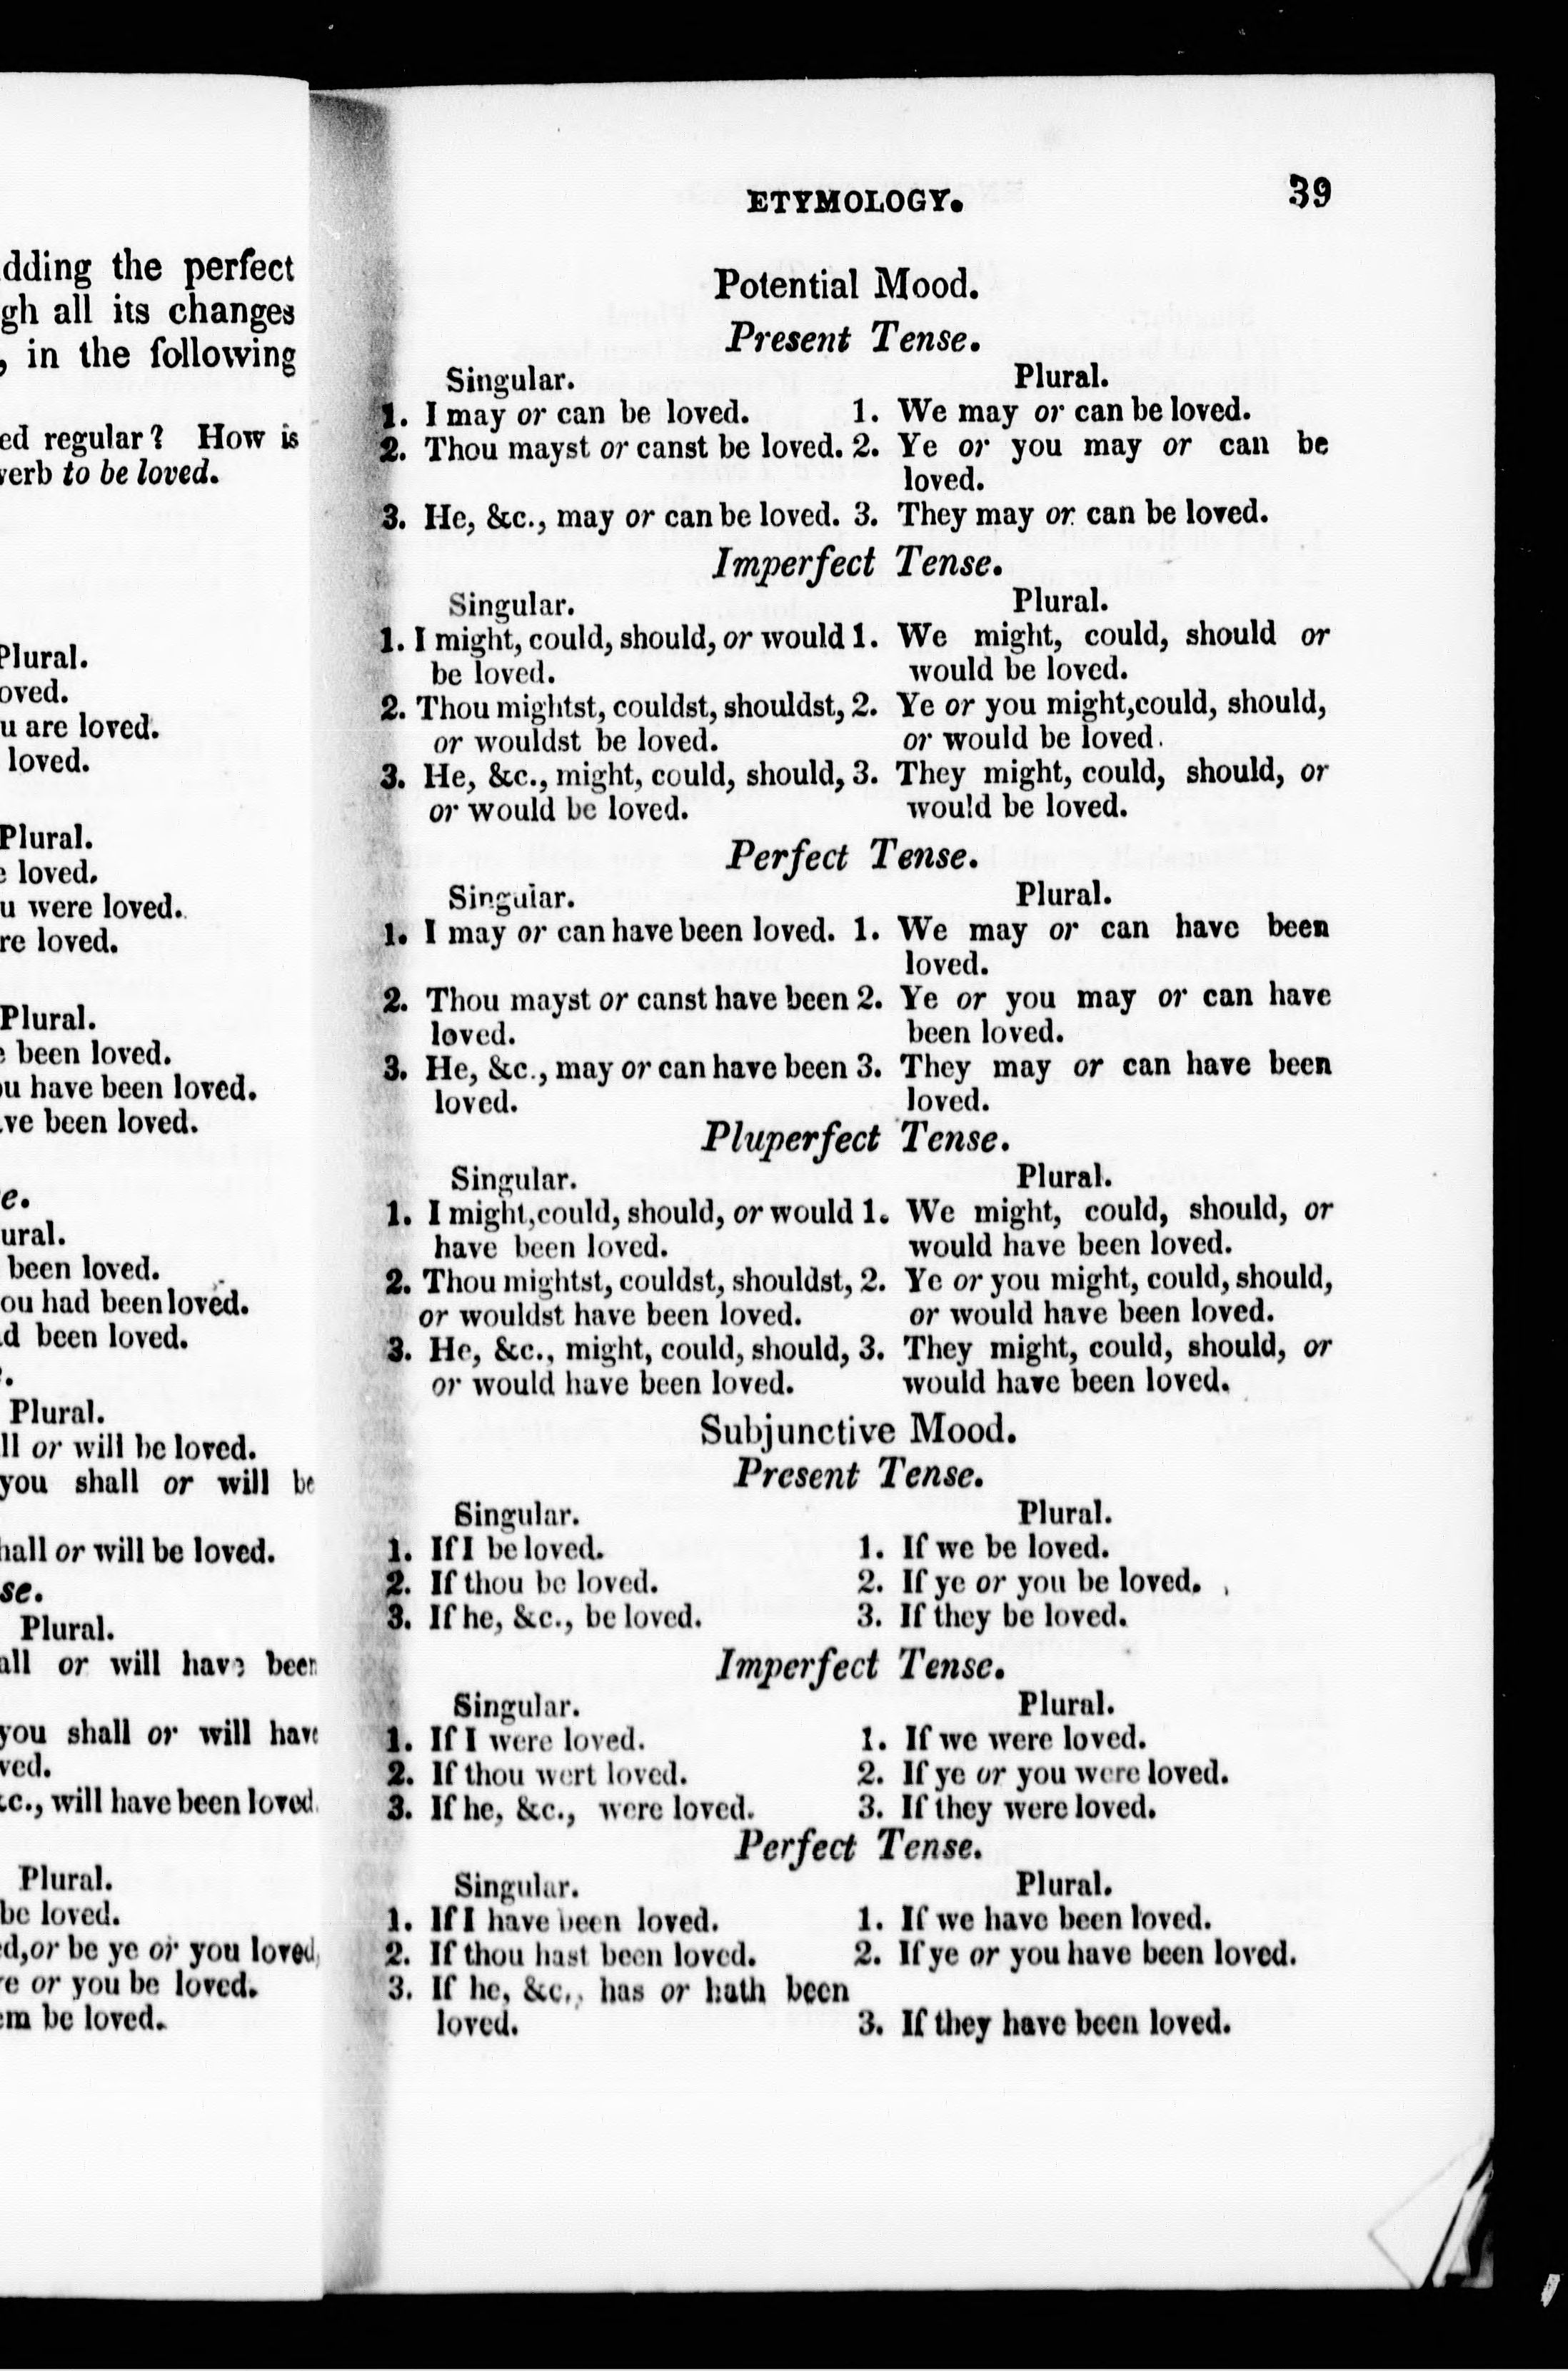 dding the perfect
gh all its changes
, in the following
ed regular? How is
verb to be loved.
Plural.
oved.
u are loved.
loved.
Plural.
e loved.
u were loved.
re loved.
Plural.
e been loved.
ou have been loved.
ve been loved.
e.
ural.
been loved.
ou had been loved.
d been loved.
Plural.
ll or will be loved.
you shall or will be
hall or will be loved.
se.
Plural.
all or will have been
you shall or will have
ved.
&c., will have been loved.
Plural.
be loved.
ed, or be ye or you loved,
e or you be loved.
em be loved.
ETYMOLOGY. 39
Potential Mood.
Present Tense.
Singular. Plural.
1. I may or can be loved. 1. We may or can be loved.
2. Thou mayst or canst be loved. 2. Ye or you may or can be
loved.
3. He, &c., may or can be loved. 3. They may or can be loved.
Imperfect Tense.
Singular. Plural.
1. I might, could, should, or would 1. We might, could, should or
be loved. would be loved.
2. Thou mightst, couldst, shouldst, 2. Ye or you might, could, should,
or wouldst be loved. or would be loved.
3. He, &c., might, could, should, 3. They might, could, should, or
or would be loved. would be loved.
Perfect Tense.
Singular. Plural.
1. I may or can have been loved. 1. We may or can have been
loved.
2. Thou mayst or canst have been 2. Ye or you may or can have
loved. been loved.
3. He, &c., may or can have been 3. They may or can have been
loved. loved.
Pluperfect Tense.
Singular. Plural.
1. I might, could, should, or would 1. We might, could, should, or
have been loved. would have been loved.
2. Thou mightst, couldst, shouldst, 2. Ye or you might, could, should,
or wouldst have been loved. or would have been loved.
3. He, &c., might, could, should, 3. They might, could, should, or
or would have been loved. would have been loved.
Subjunctive Mood.
Present Tense.
Singular. Plural.
1. If I be loved. 1. If we be loved.
2. If thou be loved. 2. If ye or you be loved.
3. If he, &c., be loved. 3. If they be loved.
Imperfect Tense.
Singular. Plural.
1. If I were loved. 1. If we were loved.
2. If thou wert loved. 2. If ye or you were loved.
3. If he, &c., were loved. 3. If they were loved.
Perfect Tense.
Singular. Plural.
1. If I have been loved. 1. If we have been loved.
2. If thou hast been loved. 2. If ye or you have been loved.
3. If he, &c., has or hath been
loved. 3. If they have been loved.